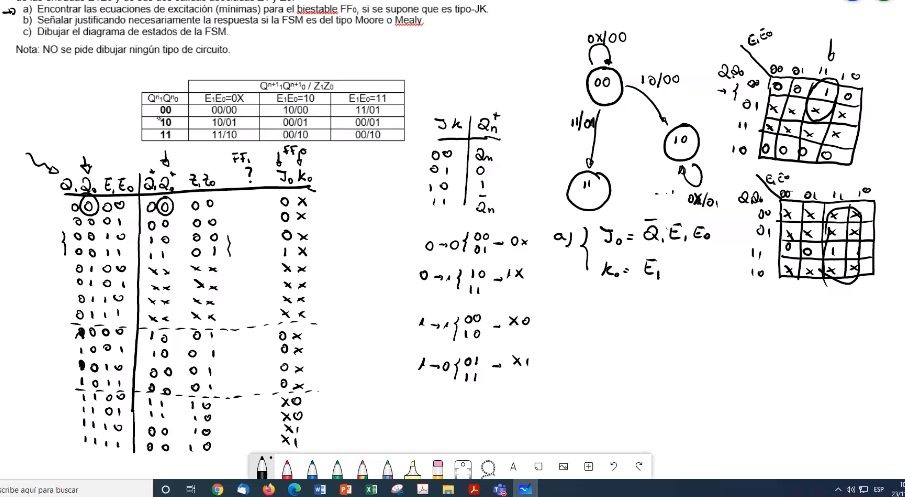 a) Encontrar las ecuaciones de excitación (mínimas) para el biestable FF₀, si se supone que es tipo-JK.
b) Señalar justificando necesariamente la respuesta si la FSM es del tipo Moore o Mealy.
c) Dibujar el diagrama de estados de la FSM.
Nota: NO se pide dibujar ningún tipo de circuito.
Qⁿ⁺¹₁Qⁿ⁺¹₀ / Z₁Z₀
Qⁿ₁Qⁿ₀ E₁E₀=0X E₁E₀=10 E₁E₀=11
00 00/00 10/00 11/01
10 10/01 00/01 00/01
11 11/10 00/10 00/10
FF₁ FF₀
Q₁ Q₀ E₁ E₀ Q₁⁺ Q₀⁺ Z₁ Z₀ ? J₀ K₀
0 0 0 0 0 0 0 0 0 X
0 0 0 1 0 0 0 0 0 X
0 0 1 0 1 0 0 0 0 X
0 0 1 1 1 1 0 1 1 X
0 1 0 0 X X X X X X
0 1 0 1 X X X X X X
0 1 1 0 X X X X X X
0 1 1 1 X X X X X X
1 0 0 0 1 0 0 1 0 X
1 0 0 1 1 0 0 1 0 X
1 0 1 0 0 0 0 1 0 X
1 0 1 1 0 0 0 1 0 X
1 1 0 0 1 1 1 0 X 0
1 1 0 1 1 1 1 0 X 0
1 1 1 0 0 0 1 0 X 1
1 1 1 1 0 0 1 0 X 1
J K Qn⁺
0 0 Qn
0 1 0
1 0 1
1 1 Q̄n
0→0 { 00 01 → 0X
0→1 { 10 11 → 1X
1→1 { 00 10 → X0
1→0 { 01 11 → X1
0X/00
00
10/00
11/01
10
11
0X/01
a) { J₀ = Q̄₁ E₁ E₀
K₀ = E₁
E₁E₀
Q₁Q₀ 00 01 11 10
00 0 0 1 0
01 X X X X
11 X X X X
10 0 0 0 0
E₁E₀
Q₁Q₀ 00 01 11 10
00 X X X X
01 X X X X
11 0 0 1 1
10 X X X X
scribe aquí para buscar
ESP